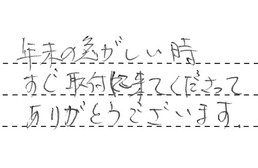 年末の急がしい時
すぐ取付に来てくださって
ありがとうございます。